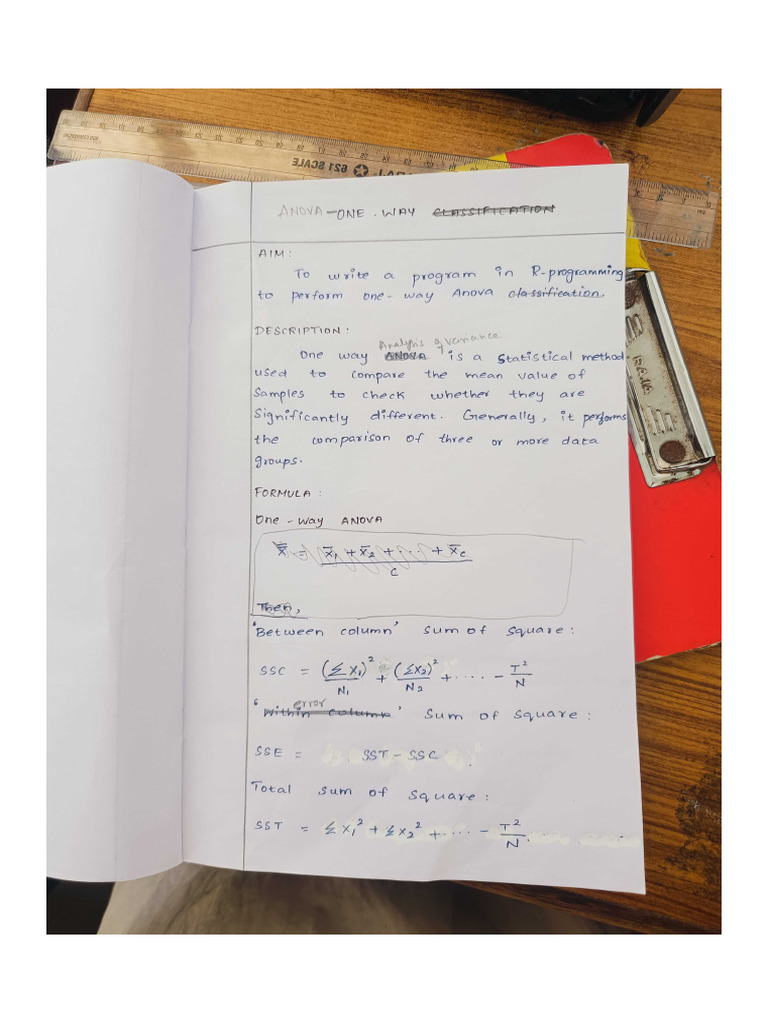 621 SCALE
ANOVA - ONE - WAY CLASSIFICATION
AIM :
To write a program in R-programming
to perform one-way Anova classification.
RAJA
DESCRIPTION :
Analysis of variance
One way ANOVA is a Statistical method
used to compare the mean value of
Samples to check whether they are
Significantly different. Generally, it performs
the comparison of three or more data
groups.
FORMULA :
One - way ANOVA
X̿ = X̄1 + X̄2 + ... + X̄c / c
Then,
'Between column' sum of square :
SSC = (ΣX1)² / N1 + (ΣX2)² / N2 + .... - T² / N
error
'Within column' Sum of Square :
SSE = SST - SSC
Total sum of square :
SST = ΣX1² + ΣX2² + .... - T² / N